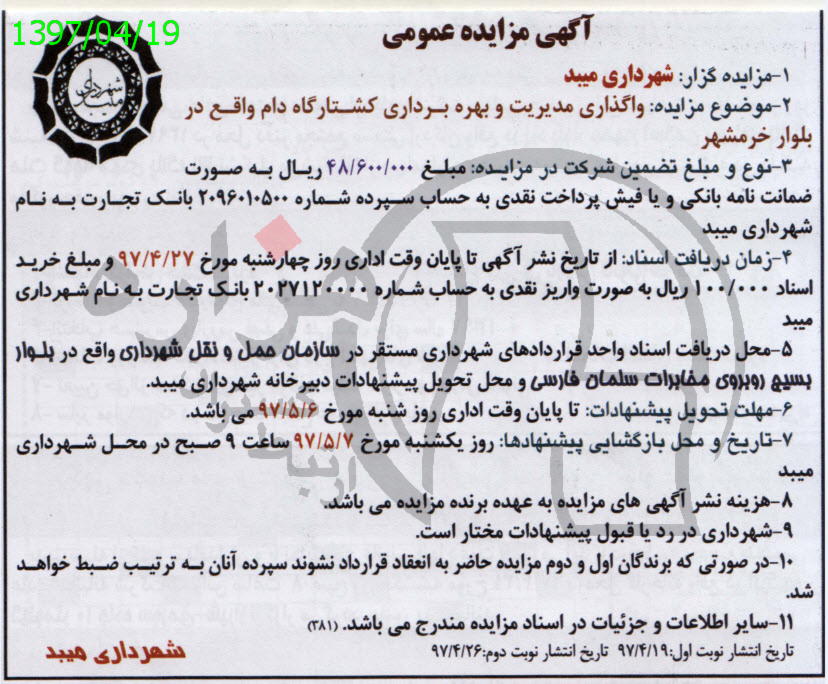 1397/04/19
آگهی مزایده عمومی
شهرداری میبد
۱-مزایده گزار: شهرداری میبد
۲-موضوع مزایده: واگذاری مدیریت و بهره برداری کشتارگاه دام واقع در
بلوار خرمشهر
۳-نوع و مبلغ تضمین شرکت در مزایده: مبلغ ۴۸/۶۰۰/۰۰۰ ریال به صورت
ضمانت نامه بانکی و یا فیش پرداخت نقدی به حساب سپرده شماره ۲۰۹۶۰۱۰۵۰۰ بانک تجارت به نام
شهرداری میبد
۴-زمان دریافت اسناد: از تاریخ نشر آگهی تا پایان وقت اداری روز چهارشنبه مورخ ۹۷/۴/۲۷ و مبلغ خرید
اسناد ۱۰۰/۰۰۰ ریال به صورت واریز نقدی به حساب شماره ۲۰۲۷۱۲۰۰۰۰ بانک تجارت به نام شهرداری
میبد
۵-محل دریافت اسناد واحد قراردادهای شهرداری مستقر در سازمان حمل و نقل شهرداری واقع در بلوار
بسیج روبروی مخابرات سلمان فارسی و محل تحویل پیشنهادات دبیرخانه شهرداری میبد.
۶-مهلت تحویل پیشنهادات: تا پایان وقت اداری روز شنبه مورخ ۹۷/۵/۶ می باشد.
۷-تاریخ و محل بازگشایی پیشنهادها: روز یکشنبه مورخ ۹۷/۵/۷ ساعت ۹ صبح در محل شهرداری
میبد
۸-هزینه نشر آگهی های مزایده به عهده برنده مزایده می باشد.
۹-شهرداری در رد یا قبول پیشنهادات مختار است.
۱۰-در صورتی که برندگان اول و دوم مزایده حاضر به انعقاد قرارداد نشوند سپرده آنان به ترتیب ضبط خواهد
شد.
۱۱-سایر اطلاعات و جزئیات در اسناد مزایده مندرج می باشد. (۳۸۱)
تاریخ انتشار نوبت اول: ۹۷/۴/۱۹ تاریخ انتشار نوبت دوم: ۹۷/۴/۲۶
شهرداری میبد
هزاره